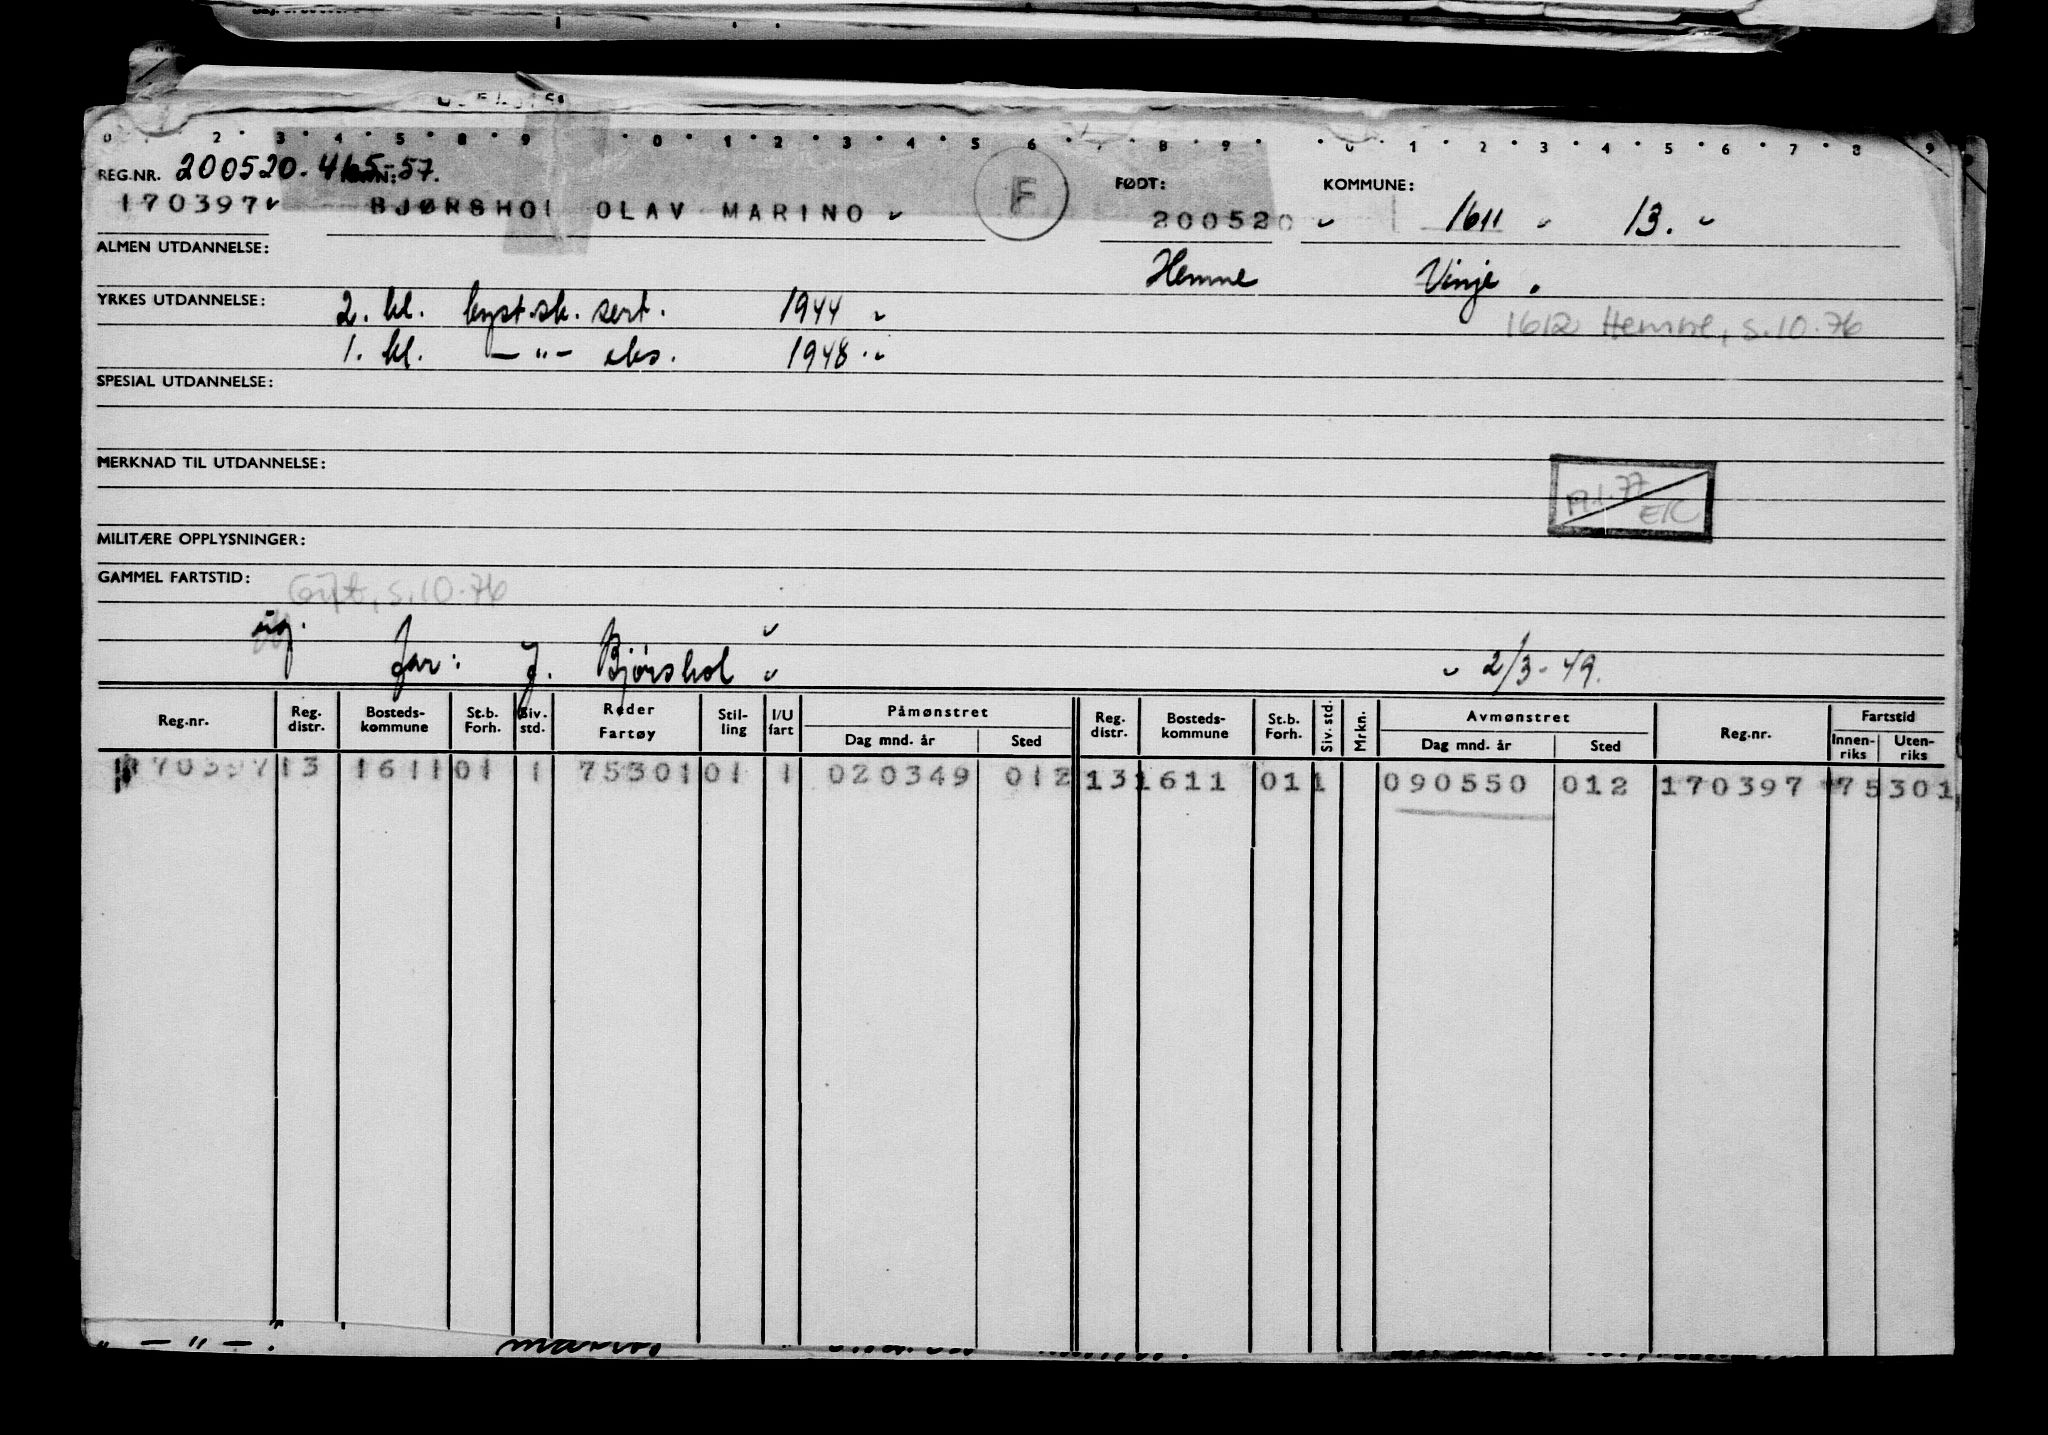 0 2 3 4 5 8 9 0 1 2 3 4 5 6 7 8 9 0 1 2 3 4 5 6 7 8 9
REG.NR. 200520. 465-57. FØDT: KOMMUNE:
170397 BJØRSHOL OLAV MARINO F 200520 1611 13.
ALMEN UTDANNELSE: Hemne Vinje
YRKES UTDANNELSE: 2. kl. kyst.sk. sert. 1944
1612 Hemne, s.10.76
1. kl. — " — eks. 1948
SPESIAL UTDANNELSE:
MERKNAD TIL UTDANNELSE:
77
EK
MILITÆRE OPPLYSNINGER:
GAMMEL FARTSTID: Gift, s.10.76
ug.
far: J. Bjørshol 2/3-49.
Reg.nr. Reg. distr. Bosteds-kommune St.b. Forh. Siv. std. Reder Fartøy Stil-ling I/U fart Påmønstret Dag mnd. år Sted Reg. distr. Bosteds-kommune St.b. Forh. Siv. std. Mrkn. Avmønstret Dag mnd. år Sted Reg.nr. Fartstid Innen-riks Uten-riks
170397 13 1611 01 1 75301 01 1 020349 012 13 1611 01 1 090550 012 170397 75301
— " —